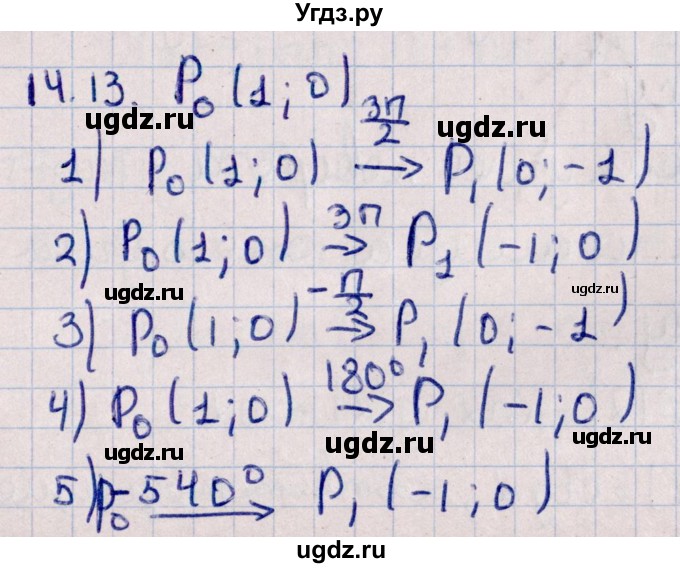 Угдз.ру
14.13. P₀ (1; 0)
ugdz.ru ugdz.ru
1) P₀ (1; 0) 3π/2 → P₁ (0; -1)
2) P₀ (1; 0) 3π → P₁ (-1; 0)
ugdz.ru ugdz.ru ugdz.ru
3) P₀ (1; 0) -π/2 → P₁ (0; -1)
4) P₀ (1; 0) 180° → P₁ (-1; 0)
ugdz.ru ugdz.ru ugdz.ru
5) P₀ -540° → P₁ (-1; 0)
ugdz.ru